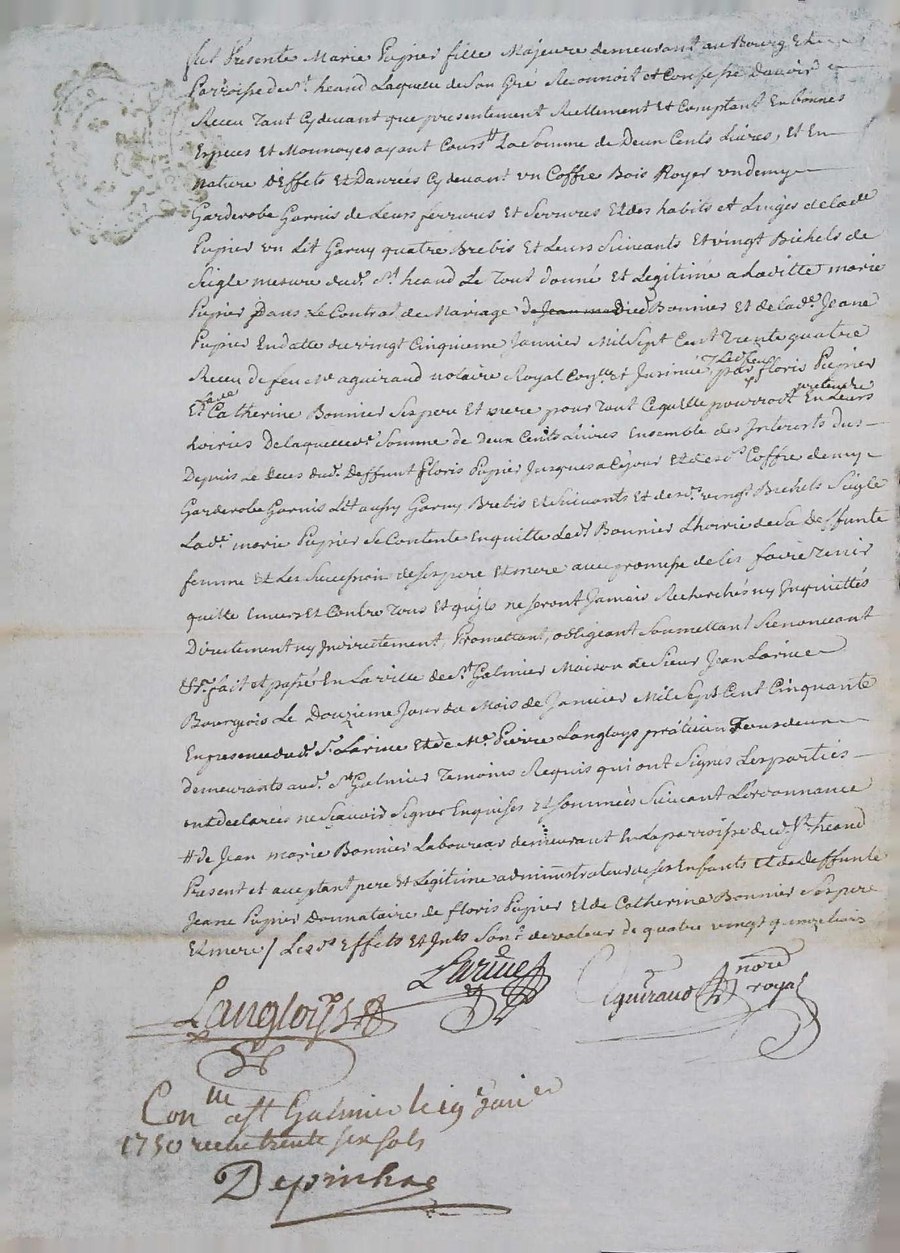 fut Presente Marie Pupier fille Majeure demeurant au Bourg Et
Parroisse de St. heand Laquelle de Son Gré Reconnoit et Confesse D'avoir
Receu Tant Cy devant que presentement Reellement Et Comptant En bonnes
Especes Et Monnoyes ayant Cours La Somme de Deux Cents Livres, Et En
nature D'Effets Et Danrées Cy devant un Coffre Bois Noyer un demy
Garderobe Garnis de Leurs ferrures Et Serrures Et des habits et Linges de lade
Pupier un Lit Garny quatre Brebis Et Leurs Suivants Et vingt Bichets de
Seigle mesure dud. St. heand Le Tout donné Et Legitimé a Laditte marie
Pupier Dans Le Contrat de Mariage dud Bonnier Et de lad. Jeane
Pupier En datte du vingt Cinquieme Janvier Mil Sept Cent Trente quatre
Receu de feu Me aguiraud notaire Royal Et Insinué par Ledit feu floris Pupier
Et Lade Catherine Bonnier Ses pere Et mere pour Tout Ce quelle pourroit pretendre En Leurs
hoiries De laquelle de. Somme de Deux Cents Livres Ensemble des Interests dus
Depuis Le Deces dud. Deffunt floris Pupier Jusques a Cejour Et desd. Coffre demy
Garderobe Garnis Lit aussy Garny Brebis Et Suivants Et desd. vingt Bichets Seigle
Lad. marie Pupier Se Contente En quitte Led. Bonnier L'hoirie de Sa Deffunte
femme Et Les Succession de Ses pere Et mere avec promesse de les faire Tenir
quitte Envers Et Contre Tous Et qu'ils ne Seront Jamais Recherchés ny Inquiettés
Directement ny Indirectement, Promettant, obligeant Soumettant Renoncant
&c. fait et passé En La ville de St. Galmier Maison de Sieur Jean Larive
Bourgois Le Douzieme Jour du Mois de Janvier Mil Sept Cent Cinquante
En presence dud. Sr. Larive Et de Me. Pierre Langloys praticien Tous deux
demeurants aud. St. Galmier Temoins Requis qui ont Signes Les parties
ont declarées ne Sçavoir Signer Enquises Et sommées Suivant L'ordonnance
# de Jean marie Bonnier Laboureur demeurant En La parroisse dud. St. heand
Present et acceptant pere Et Legitime administrateur de ses Enfants Et de deffunte
Jeane Pupier Donnataire de floris Pupier Et de Catherine Bonnier Ses pere
Et mere / Les ds. Effets Et Sont de valeur de quatre vingt quinze livres
Larive
Langloys
aguiraud nore royal
Con lle a St Galmier le 19 Janer
1750 receu trente six sols
Depinhac